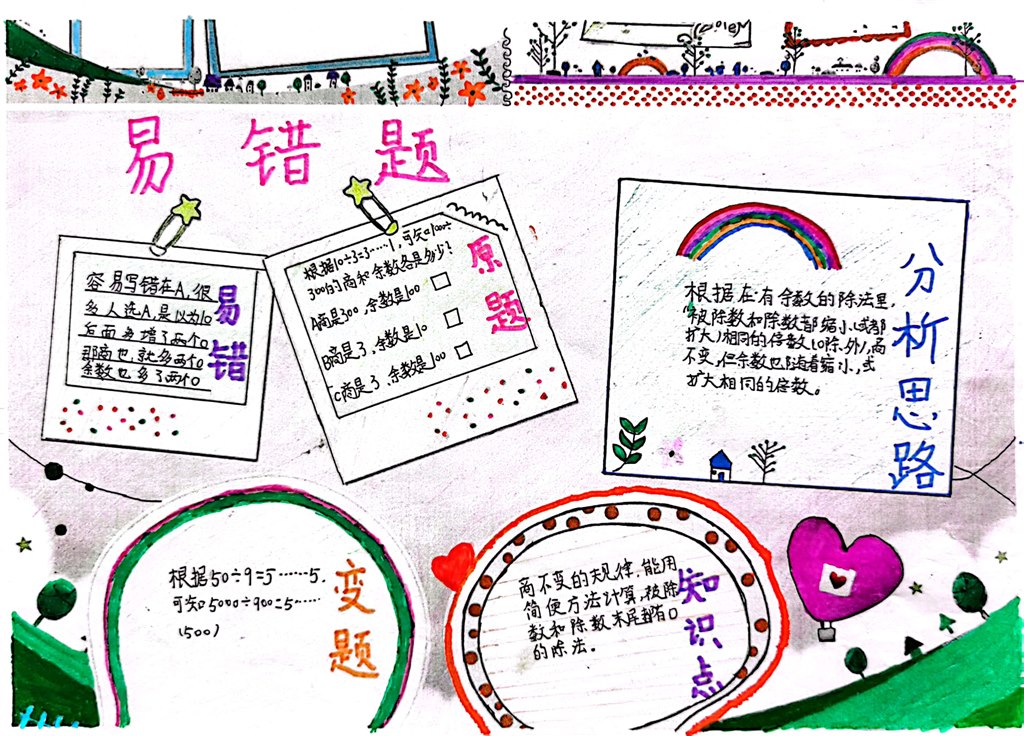 易错题
容易写错在A,很
多人选A,是以为10
后面多增了两个0
那商也就多两个0
余数也多了两个0
易错
根据10÷3=3……1,可知1000÷
300的商和余数各是多少?
A商是300,余数是100 □
B商是3,余数是10 □
C商是3,余数是100 □
原题
根据在有余数的除法里,
被除数和除数都缩小(或都
扩大)相同的倍数(0除外),商
不变,但余数也随着缩小,或
扩大相同的倍数。
分析思路
根据50÷9=5……5.
可知5000÷900=5……
(500)
变题
商不变的规律,能用
简便方法计算,被除
数和除数末尾都有0
的除法。
知识点